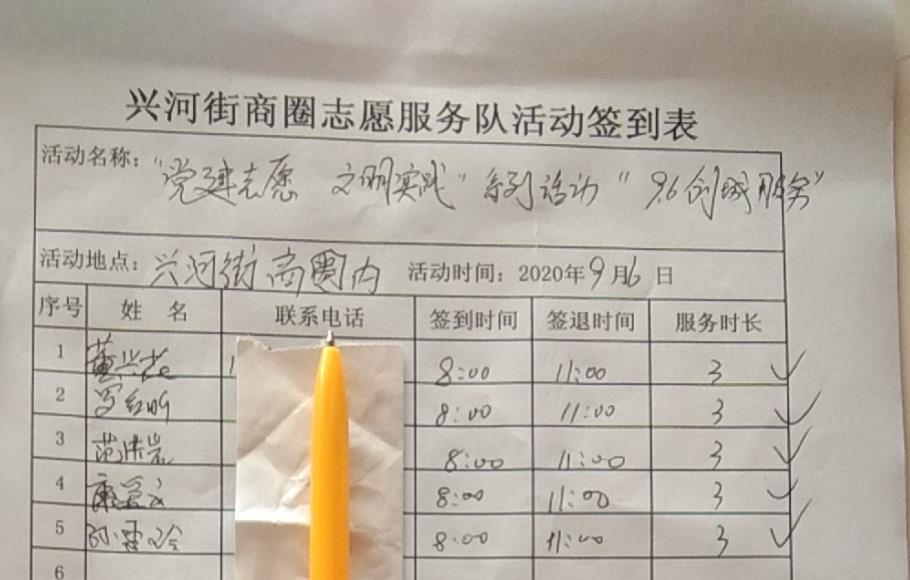 兴河街商圈志愿服务队活动签到表
活动名称："党建志愿 文明实践"系列活动"9.6创城服务"
活动地点：兴河街商圈内 活动时间：2020年9月6日
序号 姓名 联系电话 签到时间 签退时间 服务时长
1 8:00 11:00 3 ✓
2 8:00 11:00 3 ✓
3 8:00 11:00 3 ✓
4 8:00 11:00 3 ✓
5 8:00 11:00 3 ✓
6